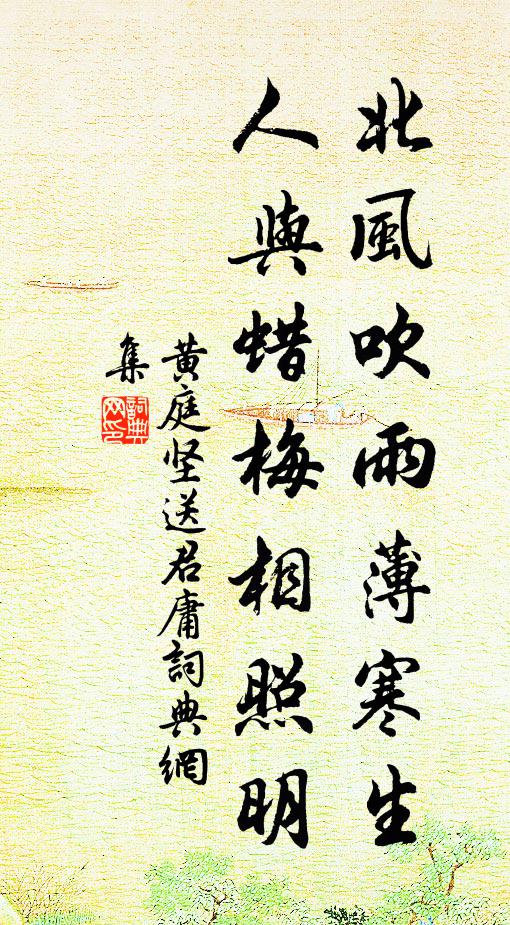 北風吹雨薄寒生
人與蜡梅相照明
黄庭坚送君庸詞典網
集
詞典網印